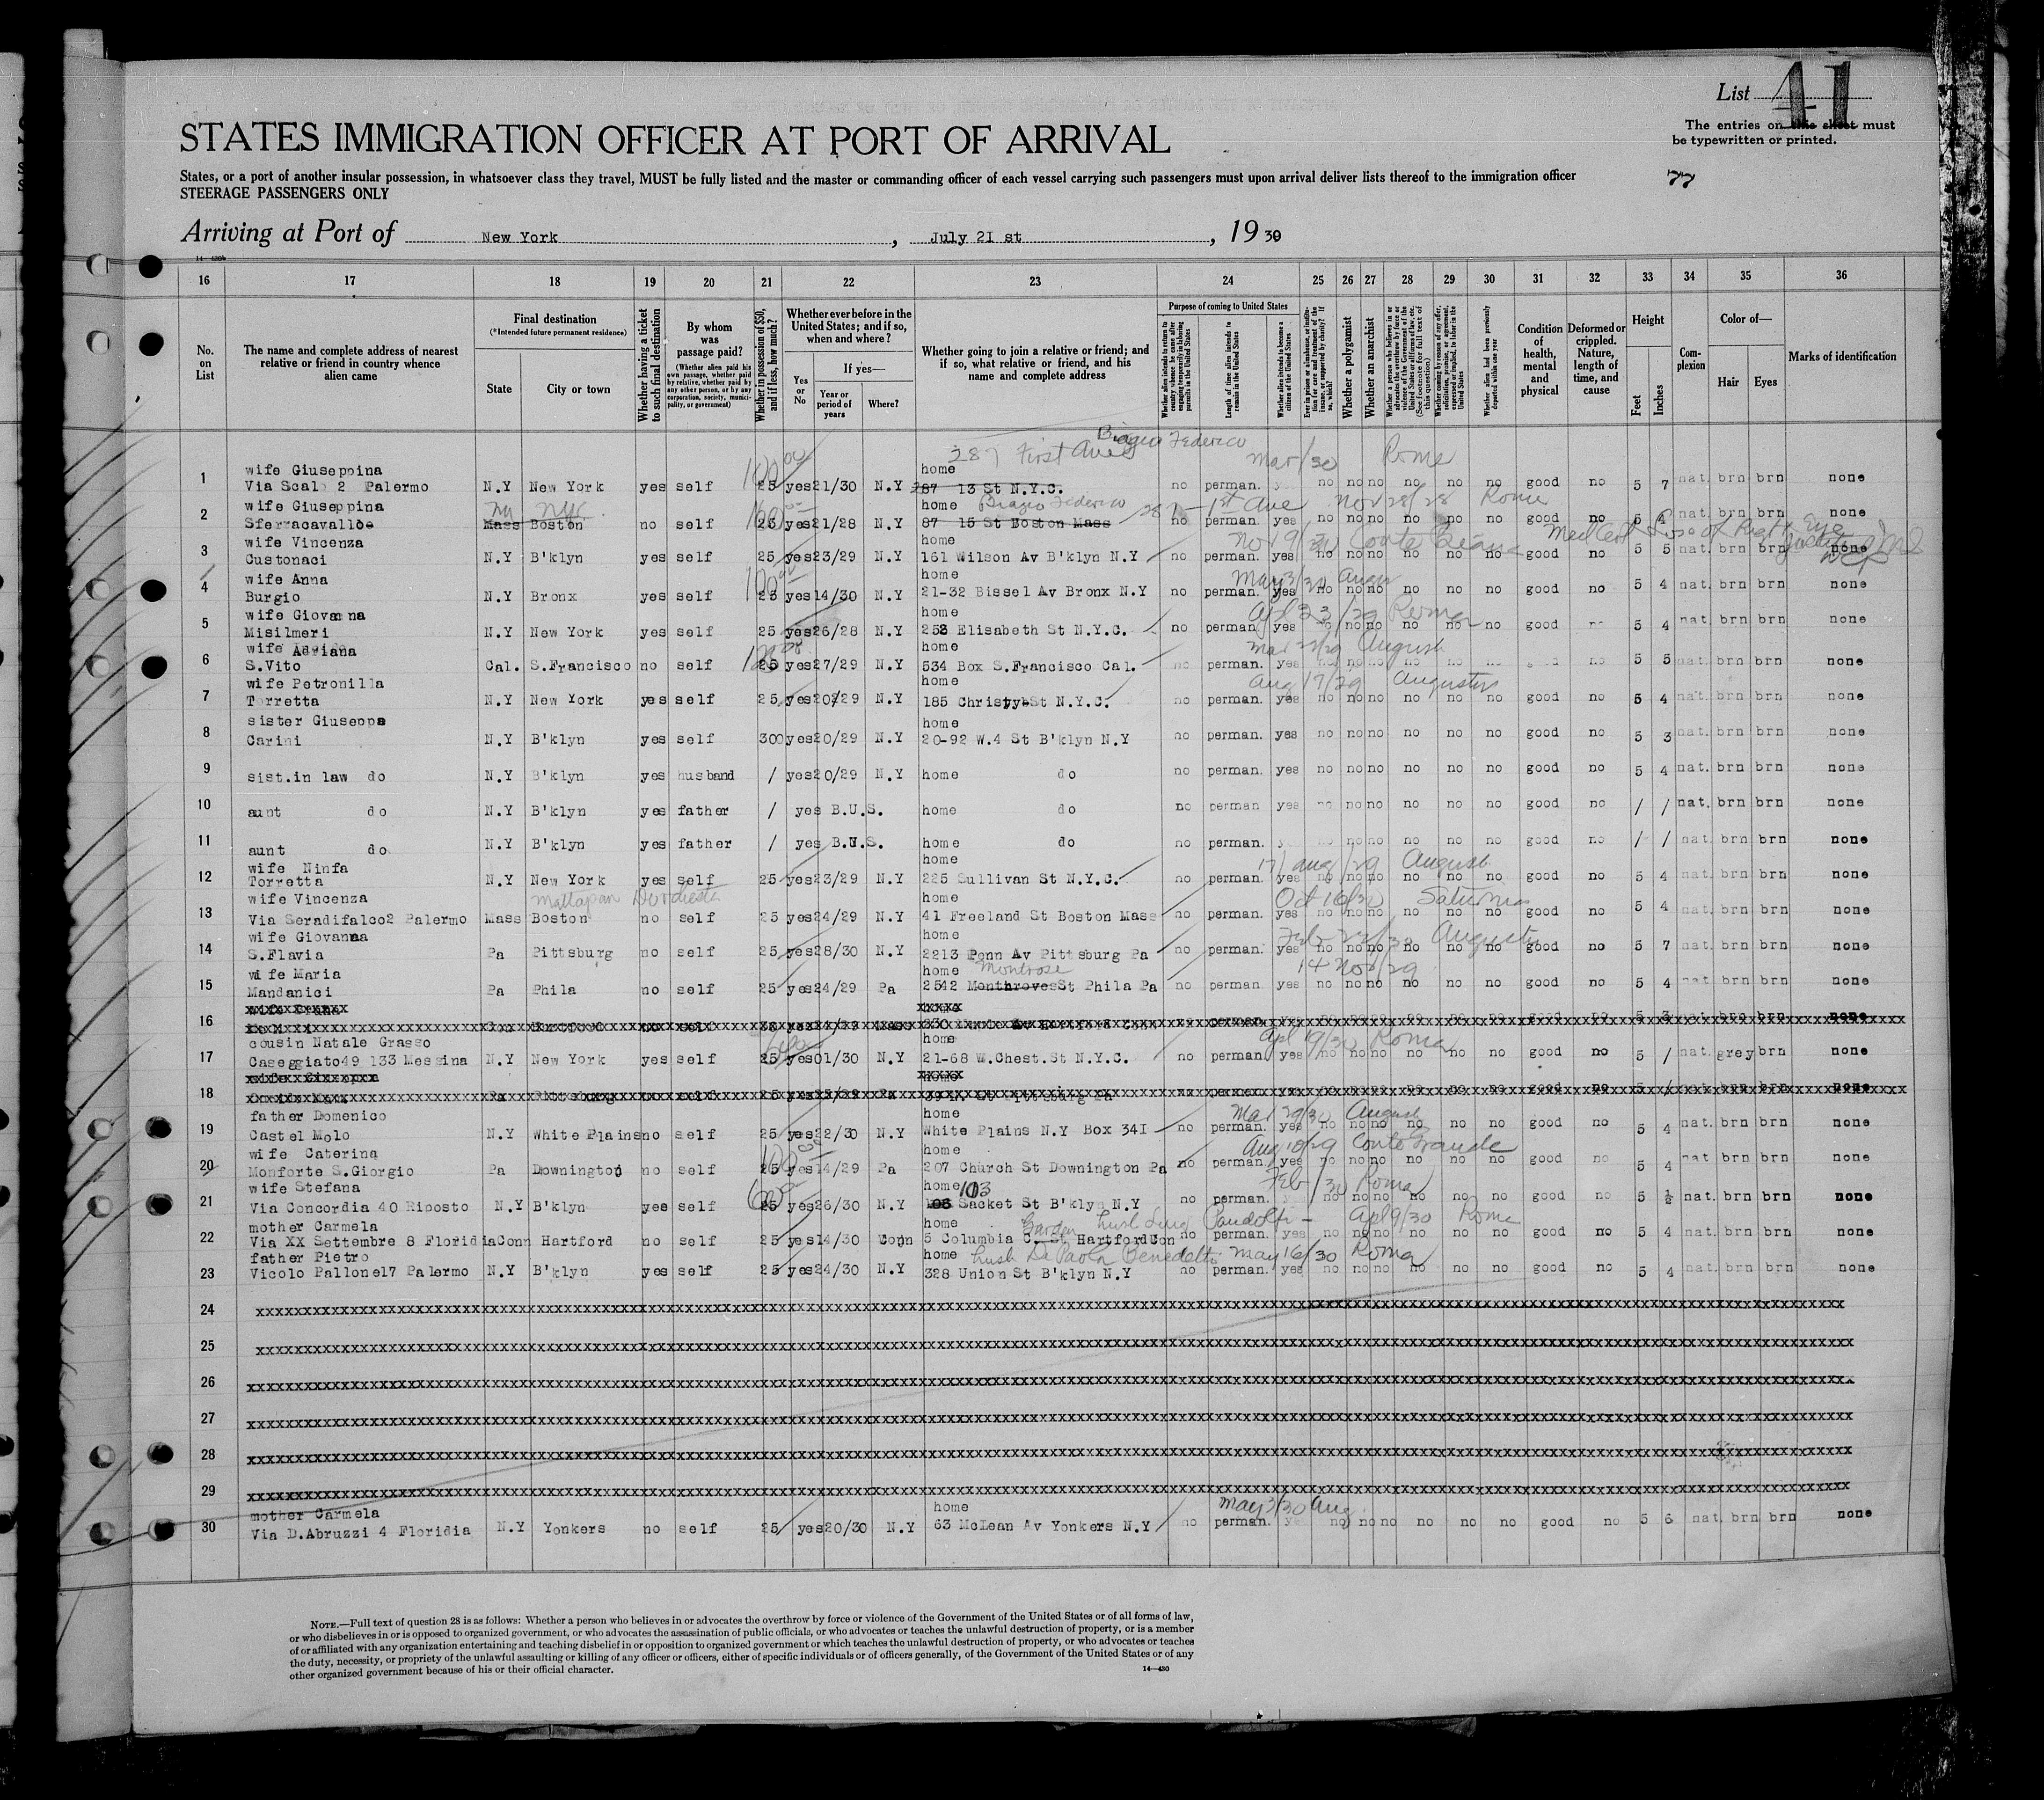 List 41
The entries on this sheet must
be typewritten or printed.
STATES IMMIGRATION OFFICER AT PORT OF ARRIVAL
States, or a port of another insular possession, in whatsoever class they travel, MUST be fully listed and the master or commanding officer of each vessel carrying such passengers must upon arrival deliver lists thereof to the immigration officer
STEERAGE PASSENGERS ONLY
77
Arriving at Port of New York, July 21 st, 1930
16 17 18 19 20 21 22 23 24 25 26 27 28 29 30 31 32 33 34 35 36
No. on List
The name and complete address of nearest relative or friend in country whence alien came
Final destination
(*Intended future permanent residence)
State
City or town
Whether having a ticket to such final destination
By whom was passage paid?
(Whether alien paid his own passage, whether paid by relative, whether paid by any other person, or by any corporation, society, municipality, or government)
Whether in possession of $50, and if less, how much?
Whether ever before in the United States; and if so, when and where?
Yes or No
If yes—
Year or period of years
Where?
Whether going to join a relative or friend; and if so, what relative or friend, and his name and complete address
Purpose of coming to United States
Whether alien intends to return to country whence he came after engaging temporarily in laboring pursuits in the United States
Length of time alien intends to remain in the United States
Whether alien intends to become a citizen of the United States
Whether a polygamist
Whether an anarchist
Condition of health, mental and physical
Deformed or crippled. Nature, length of time, and cause
Height
Feet
Inches
Complexion
Color of—
Hair
Eyes
Marks of identification
287 First Ave Biagio Federico Mar/30 Rome
1 wife Giuseppina
Via Scalo 2 Palermo N.Y New York yes self 25 yes 21/30 N.Y home 287 13 St N.Y.C. no perman. no no no no no no good no 5 7 nat. brn brn none
2 wife Giuseppina
Sferracavalloe Mass Boston no self 25 yes 21/28 N.Y home 87 15 St Boston Mass no perman. yes no no no no no no good no 5 4 nat. brn brn none
Biagio Federico 287 - 1st Ave Nov 28/28 Roma
3 wife Vincenza
Custonaci N.Y B'klyn yes self 25 yes 23/29 N.Y home 161 Wilson Av B'klyn N.Y no perman. yes no no no no no no good no 5 5 nat. brn brn none
4 wife Anna
Burgio N.Y Bronx yes self 25 yes 14/30 N.Y home 21-32 Bissel Av Bronx N.Y no perman. yes no no no no no no good no 5 4 nat. brn brn none
May 3/30
5 wife Giovanna
Misilmeri N.Y New York yes self 25 yes 26/28 N.Y home 258 Elisabeth St N.Y.C. no perman. yes no no no no no no good no 5 4 nat. brn brn none
Apl 23/29 Roma
6 wife Adriana
S.Vito Cal. S.Francisco no self 25 yes 27/29 N.Y home 534 Box S.Francisco Cal. no perman. yes 5 5 nat. brn brn none
7 wife Petronilla
Torretta N.Y New York yes self 25 yes 20/29 N.Y home 185 Christy St N.Y.C. no perman. yes no no no no no no good no 5 4 nat. brn brn none
Aug 17/29 Augustus
8 sister Giuseppa
Carini N.Y B'klyn yes self 300 yes 20/29 N.Y home 20-92 W.4 St B'klyn N.Y no perman. yes no no no no no no good no 5 3 nat. brn brn none
9 sist.in law do N.Y B'klyn yes husband / yes 20/29 N.Y home do no perman. yes no no no no no no good no 5 4 nat. brn brn none
10 aunt do N.Y B'klyn yes father / yes B.U.S. home do no perman yes no no no no no no good no / / nat. brn brn none
11 aunt do N.Y B'klyn yes father / yes B.U.S. home do no perman. no no no no no good no / / nat. brn brn none
12 wife Ninfa
Torretta N.Y New York yes self 25 yes 23/29 N.Y home 225 Sullivan St N.Y.C. no perman yes no no no no no no good no 5 4 nat. brn brn none
17 Aug/29 August
13 wife Vincenza
Via Seradifalco2 Palermo Mass Boston no self 25 yes 24/29 N.Y home 41 Freeland St Boston Mass no perman. yes no no no no no no good no 5 4 nat. brn brn none
Mattapan Oct 16/30 Saturnia
14 wife Giovanna
S.Flavia Pa Pittsburg no self 25 yes 28/30 N.Y home 2213 Penn Av Pittsburg Pa no perman. yes no no no no no no good no 5 7 nat. brn brn none
15 wife Maria
Mandanici Pa Phila no self 25 yes 24/29 Pa home 2542 Monthroves St Phila Pa no perman yes no no no no no no good no 5 4 nat. brn brn none
Montrose 14 Nov/29
16
17 cousin Natale Grasso
Caseggiato49 133 Messina N.Y New York yes self 25 yes 01/30 N.Y home 21-68 W.Chest.St N.Y.C. no perman yes no no no no no no good no 5 / nat. grey brn none
Apl 19/30 Roma
18
19 father Domenico
Castel Molo N.Y White Plains no self 25 yes 22/30 N.Y home White Plains N.Y Box 341 no perman. yes no no no no no no good no 5 4 nat. brn brn none
Mar 29/30 August
20 wife Caterina
Monforte S.Giorgio Pa Downington no self 25 yes 14/29 Pa home 207 Church St Downington Pa no perman yes no no no no no no good no 5 4 nat brn brn none
Aug 10/29 Conte Grande
21 wife Stefana
Via Concordia 40 Riposto N.Y B'klyn yes self 25 yes 26/30 N.Y home 103 Sacket St B'klyn N.Y no perman. no no no no no no good no 5 ½ nat. brn brn none
Feb /30 Roma
22 mother Carmela
Via XX Settembre 8 Floridia Conn Hartford no self 25 yes 14/30 Conn home 5 Columbia St Hartford Con no perman. yes no no no no no no good no 5 4 nat. brn brn none
Garden Apl 9/30 Rome
23 father Pietro
Vicolo Pallone17 Palermo N.Y B'klyn yes self 25 yes 24/30 N.Y home 328 Union St B'klyn N.Y no perman. yes no no no no no no good no 5 4 nat. brn brn none
husb De Paola Benedetto May 16/30 Roma
24
25
26
27
28
29
30 mother Carmela
Via D.Abruzzi 4 Floridia N.Y Yonkers no self 25 yes 20/30 N.Y home 63 McLean Av Yonkers N.Y no perman. no no no no no no good no 5 6 nat. brn brn none
May 3/30 Aug
NOTE.—Full text of question 28 is as follows: Whether a person who believes in or advocates the overthrow by force or violence of the Government of the United States or of all forms of law,
or who disbelieves in or is opposed to organized government, or who advocates the assassination of public officials, or who advocates or teaches the unlawful destruction of property, or is a member
of or affiliated with any organization entertaining and teaching disbelief in or opposition to organized government or which teaches the unlawful destruction of property, or who advocates or teaches
the duty, necessity, or propriety of the unlawful assaulting or killing of any officer or officers, either of specific individuals or of officers generally, of the Government of the United States or of any
other organized government because of his or their official character.
14—430